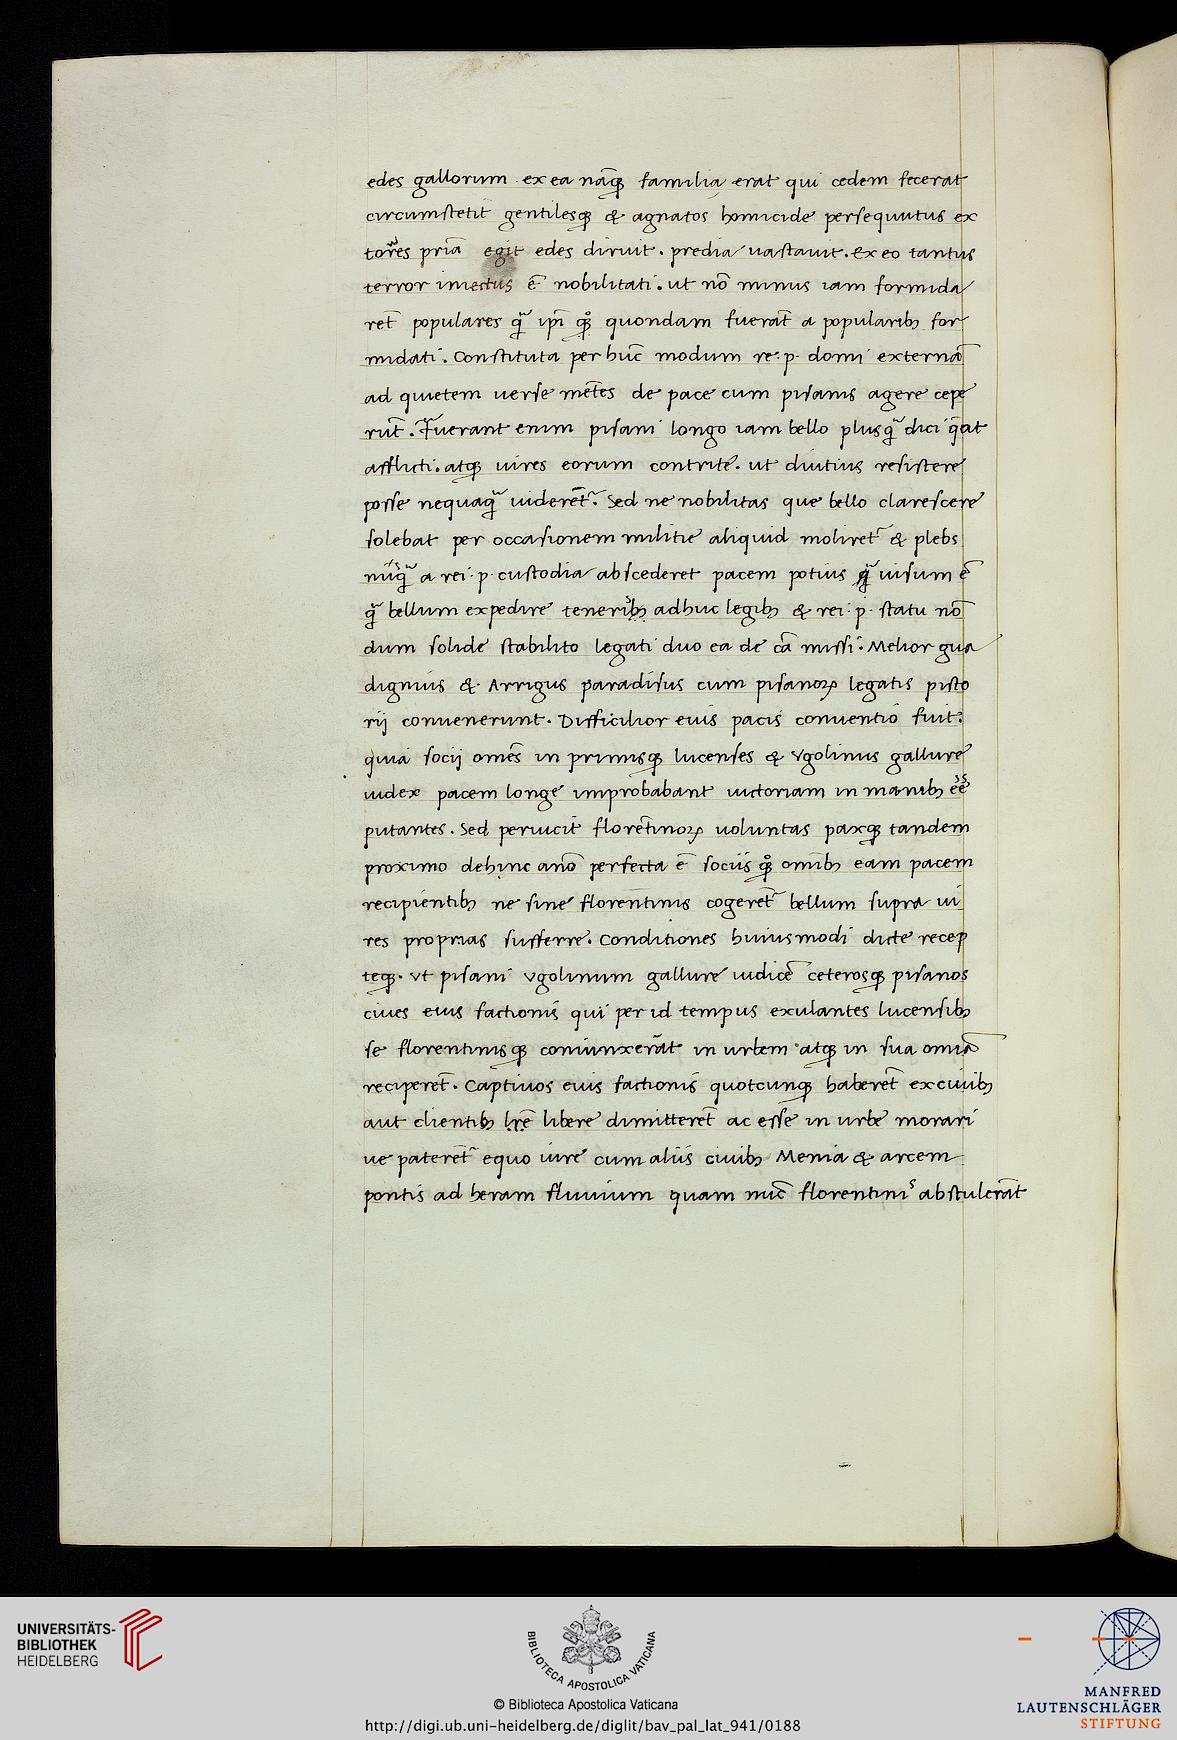 edes gallorum · ex ea nāqꝫ familia erat qui cedem fecerat
circumstetit gentilesqꝫ & agnatos homicide persequutus ex
torres pria egit edes diruit. predia uastauit. Ex eo tantus
terror iniectus ē nobilitati. ut nō minus iam formida
ret̄ populares q̄ ipī qꝫ quondam fuerāt a popularibꝫ for
midati. Constituta per hūc modum re: p· domi externā
ad quietem uerse mētes de pace cum pisanis agere cepe
rūt. Fuerant enim pisani longo iam bello plusq̄ dici q̄at
afflicti. atqꝫ uires eorum contrite. ut diutius resistere
posse nequaq̄ uiderēt. Sed ne nobilitas que bello clarescere
solebat per occasionem militie aliquid moliret & plebs
nūq̄ a rei· p· custodia abscederet pacem potius uisum ē
q̄ bellum expedire teneribꝫ adhuc legibꝫ & rei· p· statu nō
dum solide stabilito legati duo ea de cā missi· Melior gua
dignius & Arrigus paradisus cum pisanoꝝ legatis pisto
rij conuenerunt. Difficilior euis pacis conuentio fuit:
quia socij omēs in primisqꝫ lucenses & Vgolinus gallure
iudex pacem longe improbabant uictoriam in manibꝫ eē
putantes. Sed peruicit florētinoꝝ uoluntas paxqꝫ tandem
proximo dehinc anō perfecta ē sociis qꝫ omībꝫ eam pacem
recipientibꝫ ne sine florentinis cogeret bellum supra ui
res proprias sufferre. Conditiones huiusmodi dicte recep
teqꝫ. Vt pisani Vgolinum gallure iudicē ceterosqꝫ pisanos
ciues eius factionis qui per id tempus exulantes lucensibꝫ
se florentinisqꝫ coniunxerāt in urbem atqꝫ in sua omīa
reciperēt. Captiuos euis factionis quotcunqꝫ haberēt ex ciuibꝫ
aut clientibꝫ lr̄e libere dimitterēt ac esse in urbe morari
ue paterēt equo iure cum aliis ciuibꝫ Menia & arcem
pontis ad heram fluuium quam nūc florentini abstulerāt
UNIVERSITÄTS-
BIBLIOTHEK
HEIDELBERG
BIBLIOTECA APOSTOLICA VATICANA
© Biblioteca Apostolica Vaticana
http://digi.ub.uni-heidelberg.de/diglit/bav_pal_lat_941/0188
MANFRED
LAUTENSCHLÄGER
STIFTUNG